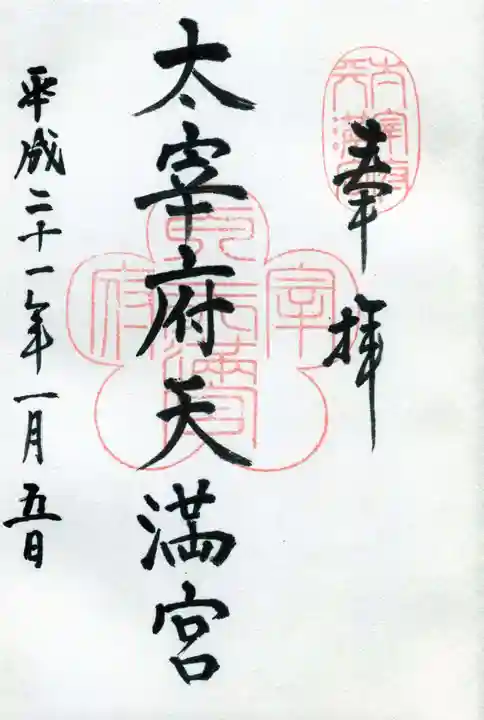 奉拝
太宰府天満宮
平成二十一年一月五日